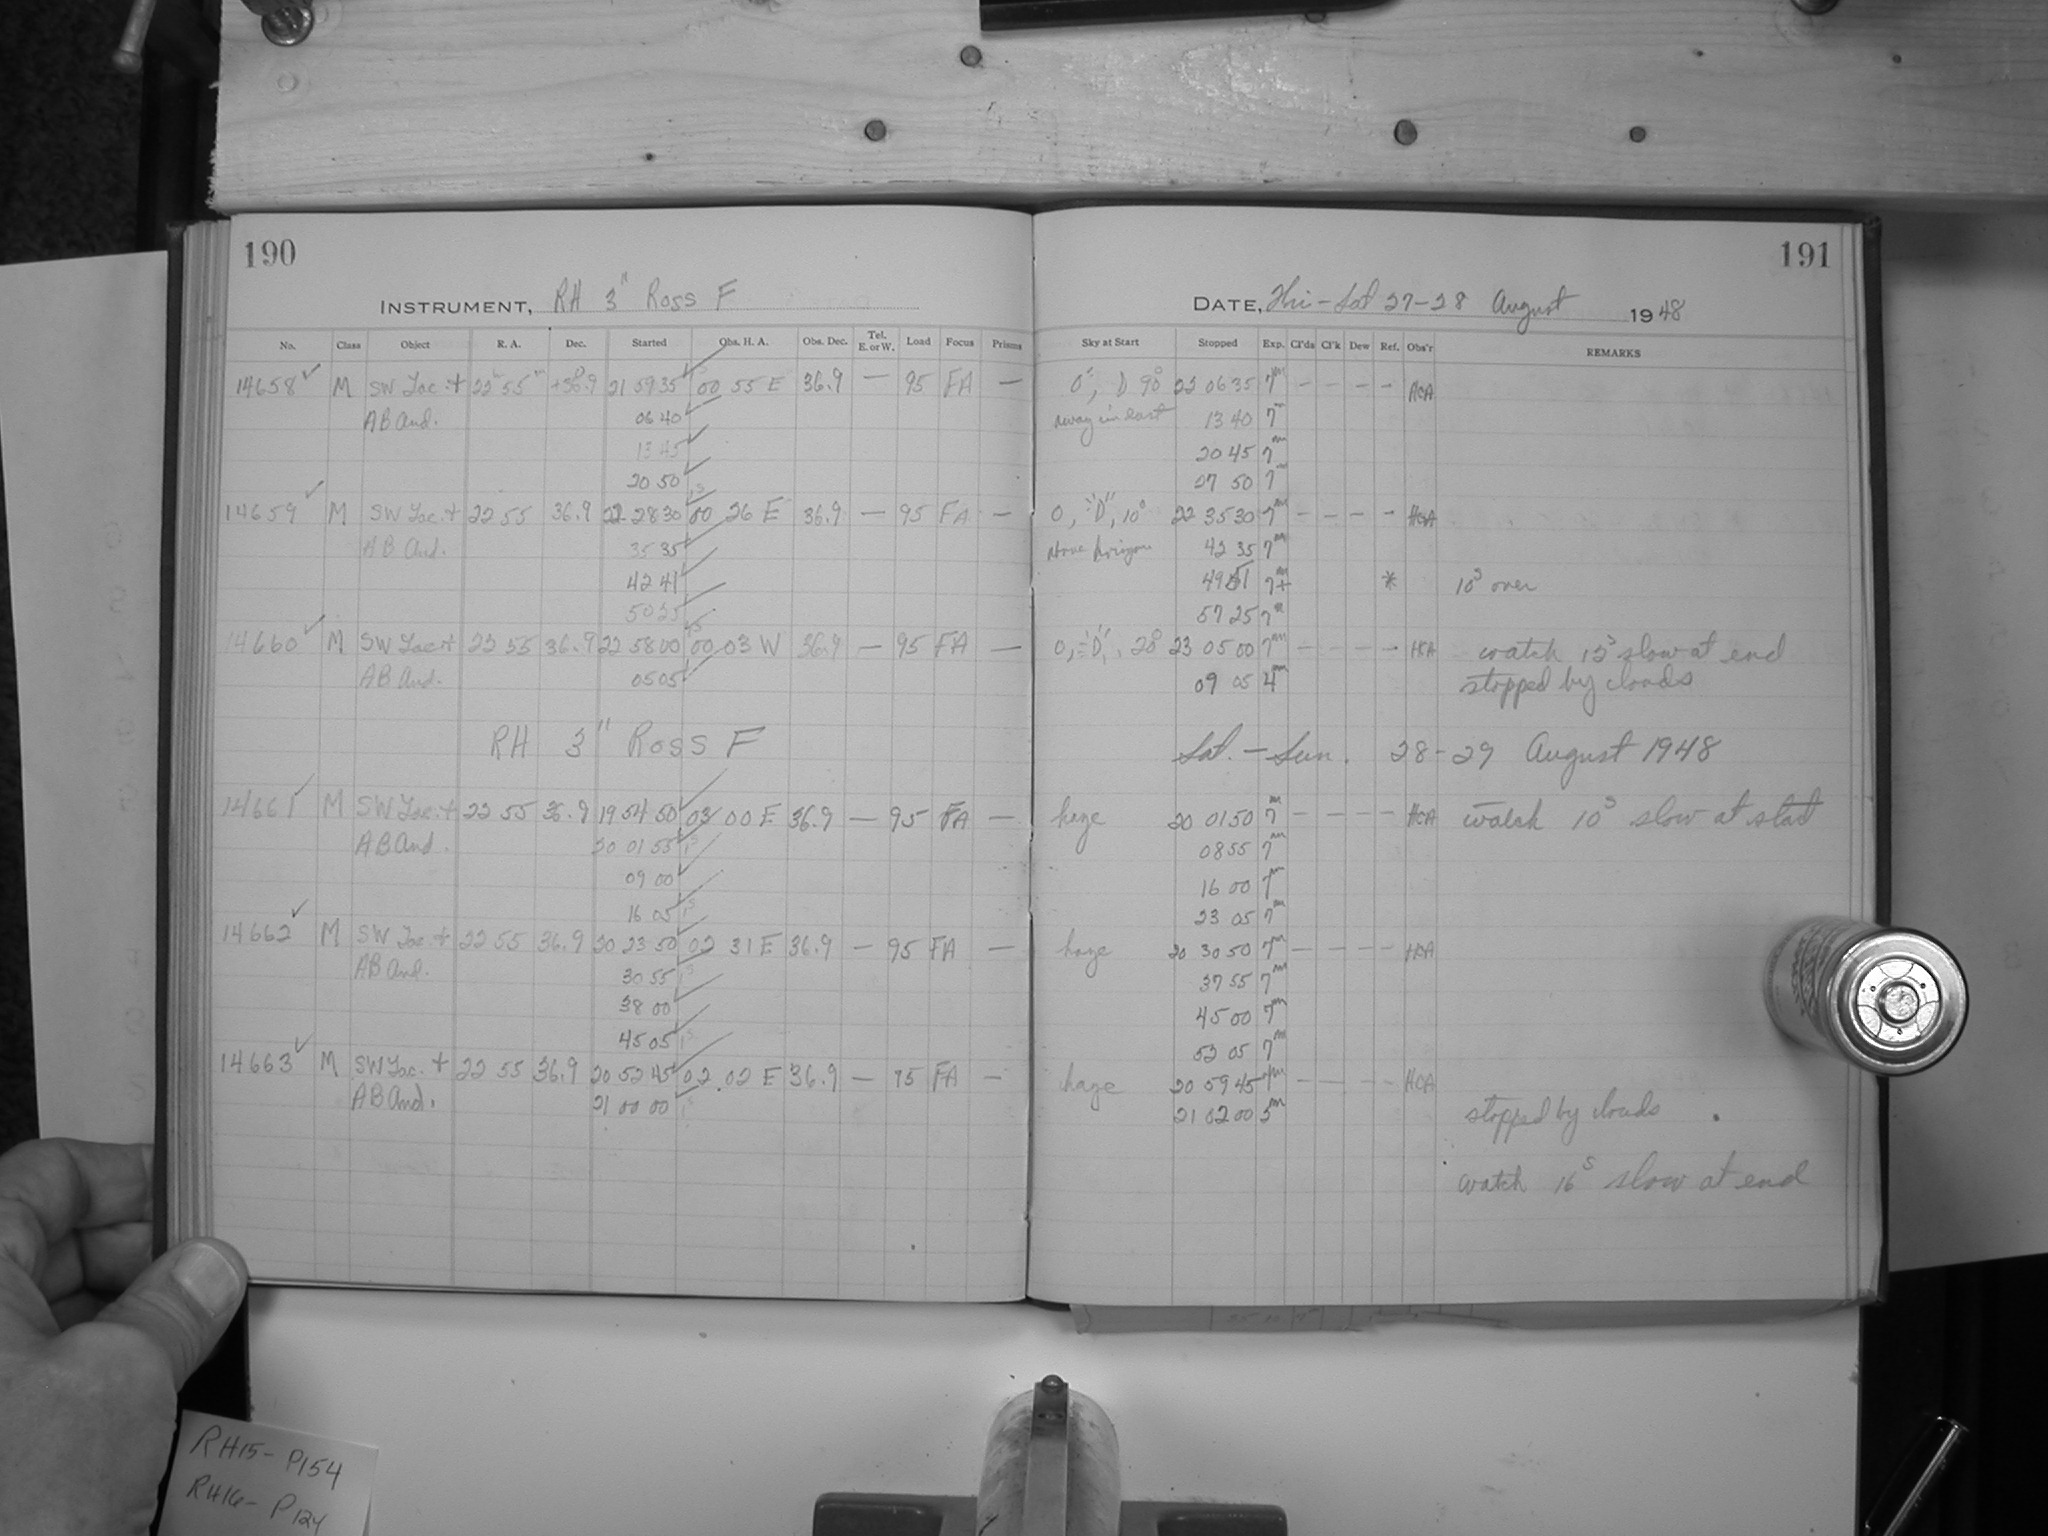 190
INSTRUMENT, RH 3" Ross F
No. Class Object R. A. Dec. Started Obs. H. A. Obs. Dec. Tel. E. or W. Load Focus Prisms
14658 ✓ M SW Lac. + 22h 55m +36.9 21 59 35 00 55 E 36.9 — 95 FA —
AB And. 06 40
13 45
20 50
14659 ✓ M SW Lac. + 22 55 36.9 22 28 30 00 26 E 36.9 — 95 FA —
AB And. 35 35
42 41
50 25
14660 ✓ M SW Lac + 22 55 36.9 22 58 00 00 03 W 36.9 — 95 FA —
AB And. 05 05
RH 3" Ross F
14661 ✓ M SW Lac. + 22 55 36.9 19 54 50 03 00 E 36.9 — 95 FA —
AB And. 20 01 55
09 00
16 05
14662 ✓ M SW Lac. + 22 55 36.9 20 23 50 02 31 E 36.9 — 95 FA —
AB And. 30 55
38 00
45 05
14663 ✓ M SW Lac. + 22 55 36.9 20 52 45 02 02 E 36.9 — 95 FA —
AB And. 21 00 00
191
DATE, Fri - Sat 27-28 August 1948
Sky at Start Stopped Exp. Cl'ds Cl'k Dew Ref. Obs'r REMARKS
0, D 90° 22 06 35 7m — — — — HCA
away in east 13 40 7m
20 45 7m
27 50 7m
0, "D", 10° 22 35 30 7m — — — — HCA
above horizon 42 35 7m
49 51 7m+ * 10s over
57 25 7m
0, "D", 20° 23 05 00 7m — — — — HCA watch 15s slow at end
09 05 4m stopped by clouds
Sat. — Sun. 28-29 August 1948
haze 20 01 50 7m — — — — HCA watch 10s slow at start
08 55 7m
16 00 7m
23 05 7m
haze 20 30 50 7m — — — — HCA
37 55 7m
45 00 7m
52 05 7m
haze 20 59 45 7m — — — — HCA
21 02 00 stopped by clouds
watch 16s slow at end
RH15- P154
RH16- P124